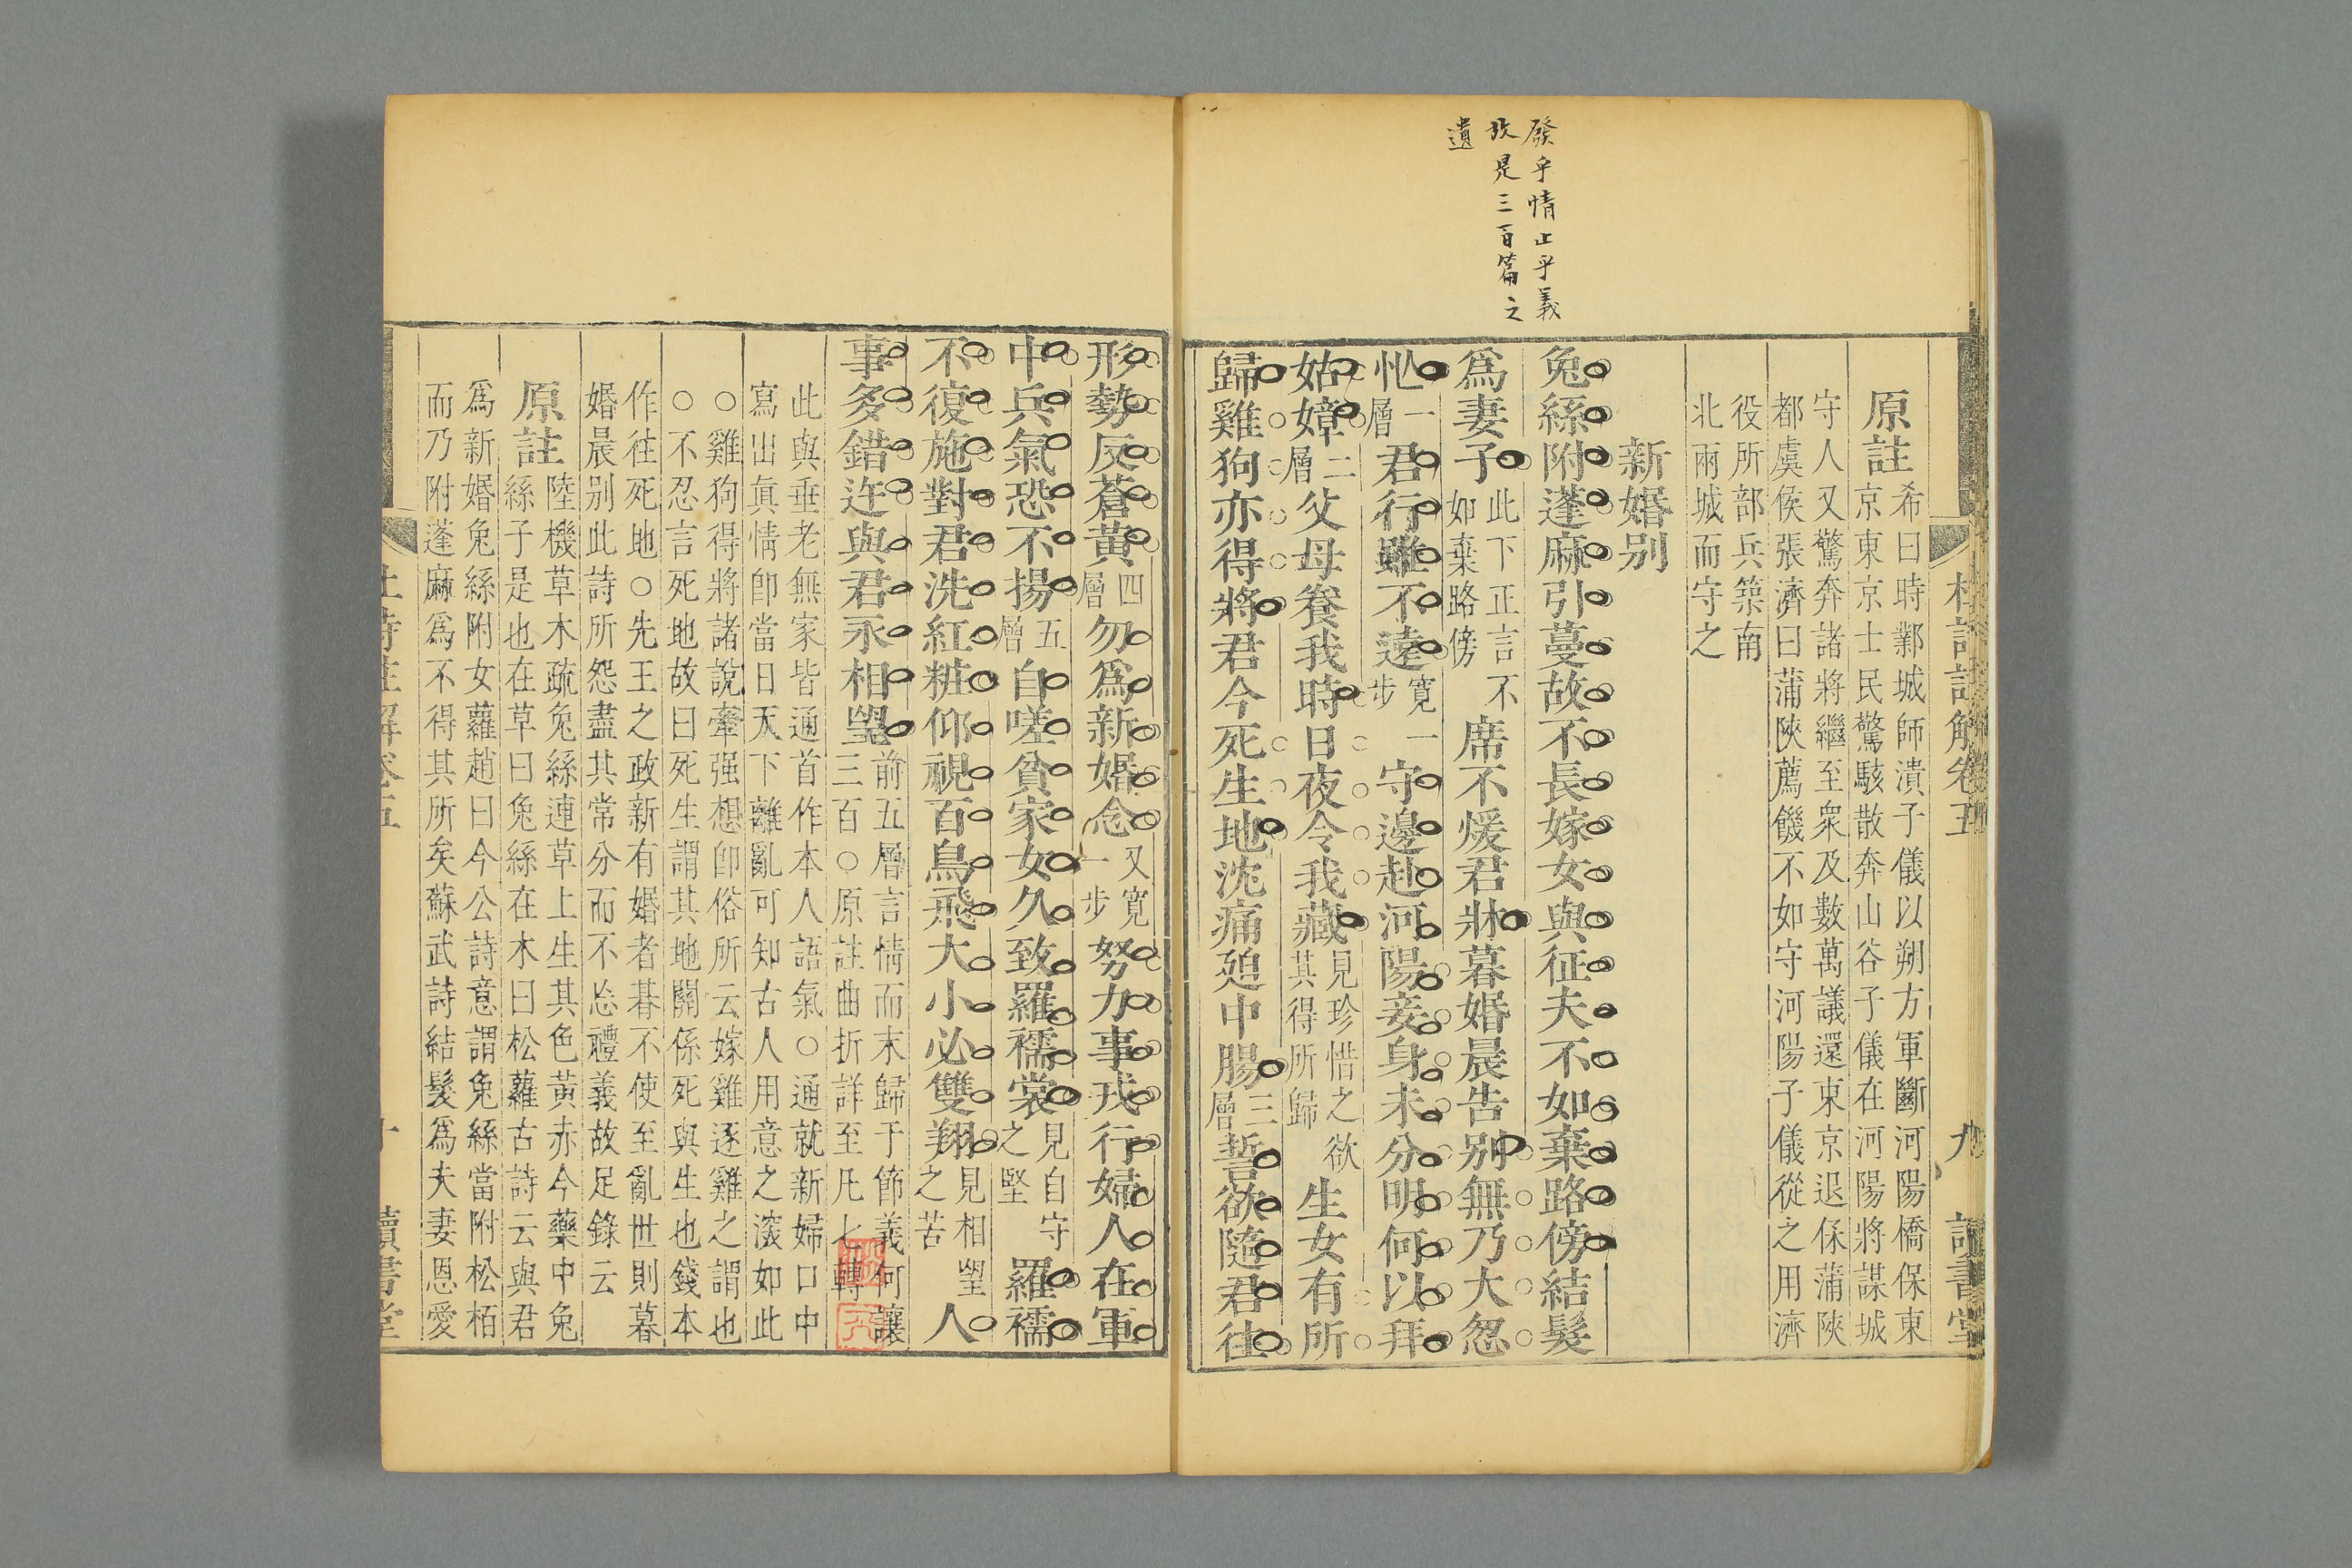 發乎情止乎義
故是三百篇之
遺
杜詩註解卷五 九 讀書堂
原註
希曰時鄴城師潰子儀以朔方軍斷河陽橋保東
京東京士民驚駭散奔山谷子儀在河陽將謀城
守人又驚奔諸將繼至衆及數萬議還東京退保蒲陝
都虞侯張濟曰蒲陝薦饑不如守河陽子儀從之用濟
役所部兵築南
北兩城而守之
新婚别
兔絲附蓬麻引蔓故不長嫁女與征夫不如棄路傍結髮
爲妻子此下正言不如棄路傍席不煖君牀暮婚晨告别無乃大怱
忙一層君行雖不遠寬一步守邊赴河陽妾身未分明何以拜
姑嫜二層父母養我時日夜令我藏見珍惜之欲其得所歸生女有所
歸雞狗亦得將君今死生地沈痛廹中腸三層誓欲隨君往
形勢反蒼黃四層勿爲新婚念又寬一步努力事戎行婦人在軍
中兵氣恐不揚五層自嗟貧家女久致羅襦裳見自守之堅羅襦
不復施對君洗紅粧仰視百鳥飛大小必雙翔見相望之苦人
事多錯迕與君永相望前五層言情而末歸于節義何讓三百○原註曲折詳至凡七轉
此與垂老無家皆通首作本人語氣○通就新婦口中
寫出眞情卽當日天下離亂可知古人用意之深如此
○雞狗得將諸說牽强想卽俗所云嫁雞逐雞之謂也
○不忍言死地故曰死生謂其地關係死與生也錢本
作往死地○先王之政新有婚者朞不使至亂世則暮
婚晨别此詩所怨盡其常分而不忘禮義故足錄云
原註
陸機草木疏兔絲連草上生其色黃赤今藥中兔
絲子是也在草曰兔絲在木曰松蘿古詩云與君
爲新婚兔絲附女蘿趙曰今公詩意謂兔絲當附松栢
而乃附蓬麻爲不得其所矣蘇武詩結髮爲夫妻恩愛
杜詩註解卷五 十 讀書堂